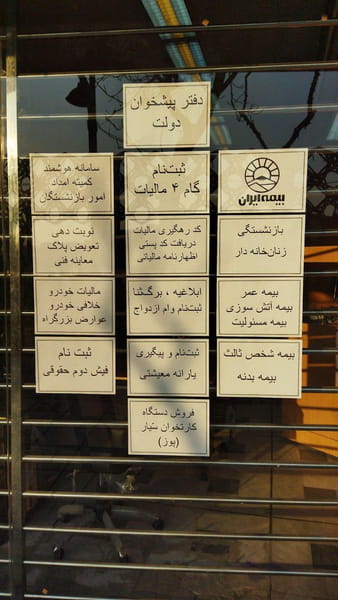 دفتر پیشخوان
دولت
بیمه ایران
ثبت‌نام
گام ۴ مالیات
سامانه هوشمند
کمیته امداد
امور بازنشستگان
بازنشستگی
زنان‌خانه دار
کد رهگیری مالیات
دریافت کد پستی
اظهارنامه مالیاتی
نوبت دهی
تعویض پلاک
معاینه فنی
بیمه عمر
بیمه آتش سوزی
بیمه مسئولیت
ابلاغیه ، برگ‌ثنا
ثبت‌نام وام ازدواج
مالیات خودرو
خلافی خودرو
عوارض بزرگراه
بیمه شخص ثالث
بیمه بدنه
ثبت‌نام و پیگیری
یارانه معیشتی
ثبت نام
فیش دوم حقوقی
فروش دستگاه
کارتخوان سیار
(پوز)